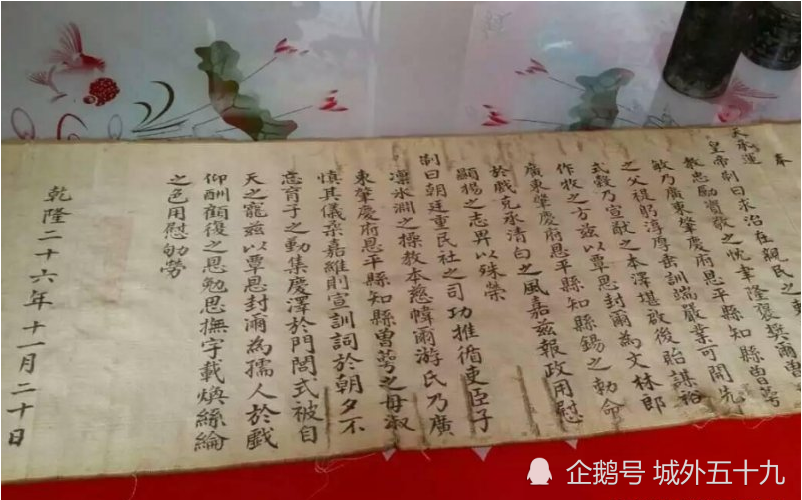 奉
天承運
皇帝制曰求治在親民之
教忠勵資敬之忱聿隆褒奬爾曾
敏乃廣東肇慶府恩平縣知縣曾萼
之父禔躬淳厚垂訓端嚴業可開先
式穀乃宣猷之本澤堪啟後貽謀裕
作牧之方茲以覃恩封爾為文林郎
廣東肇慶府恩平縣知縣錫之勅命
於戲克承清白之風嘉茲報政用慰
顯揚之志畀以殊榮
制曰朝廷重民社之司功推循吏臣子
凜冰淵之操教本慈幃爾游氏乃廣
東肇慶府恩平縣知縣曾萼之母淑
慎其儀柔嘉維則宣訓詞於朝夕不
忘育子之勤集慶澤於門閭式被自
天之寵茲以覃恩封爾為孺人於戲
仰酬顧復之恩勉思撫字載煥絲綸
之色用慰劬勞
乾隆二十六年十一月二十日
企鹅号 城外五十九